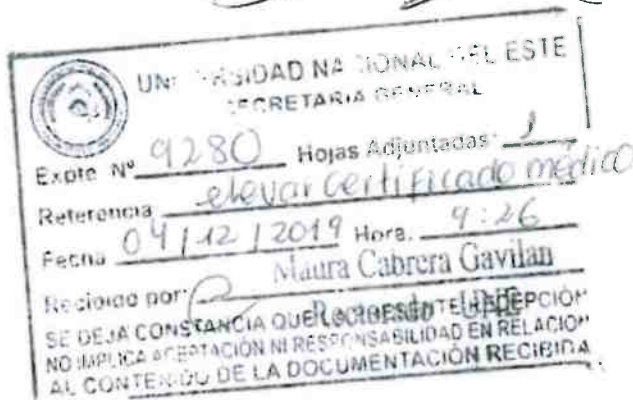 UNIVERSIDAD NACIONAL DEL ESTE
SECRETARIA GENERAL
Expte Nº 9280 Hojas Adjuntadas: 1
Referencia elevar certificado médico
Fecha 04/12/2019 Hora. 9:26
Recibido por: Maura Cabrera Gavilan
Rectorado - UNE
SE DEJA CONSTANCIA QUE LA PRESENTE RECEPCIÓN
NO IMPLICA ACEPTACIÓN NI RESPONSABILIDAD EN RELACION
AL CONTENIDO DE LA DOCUMENTACIÓN RECIBIDA